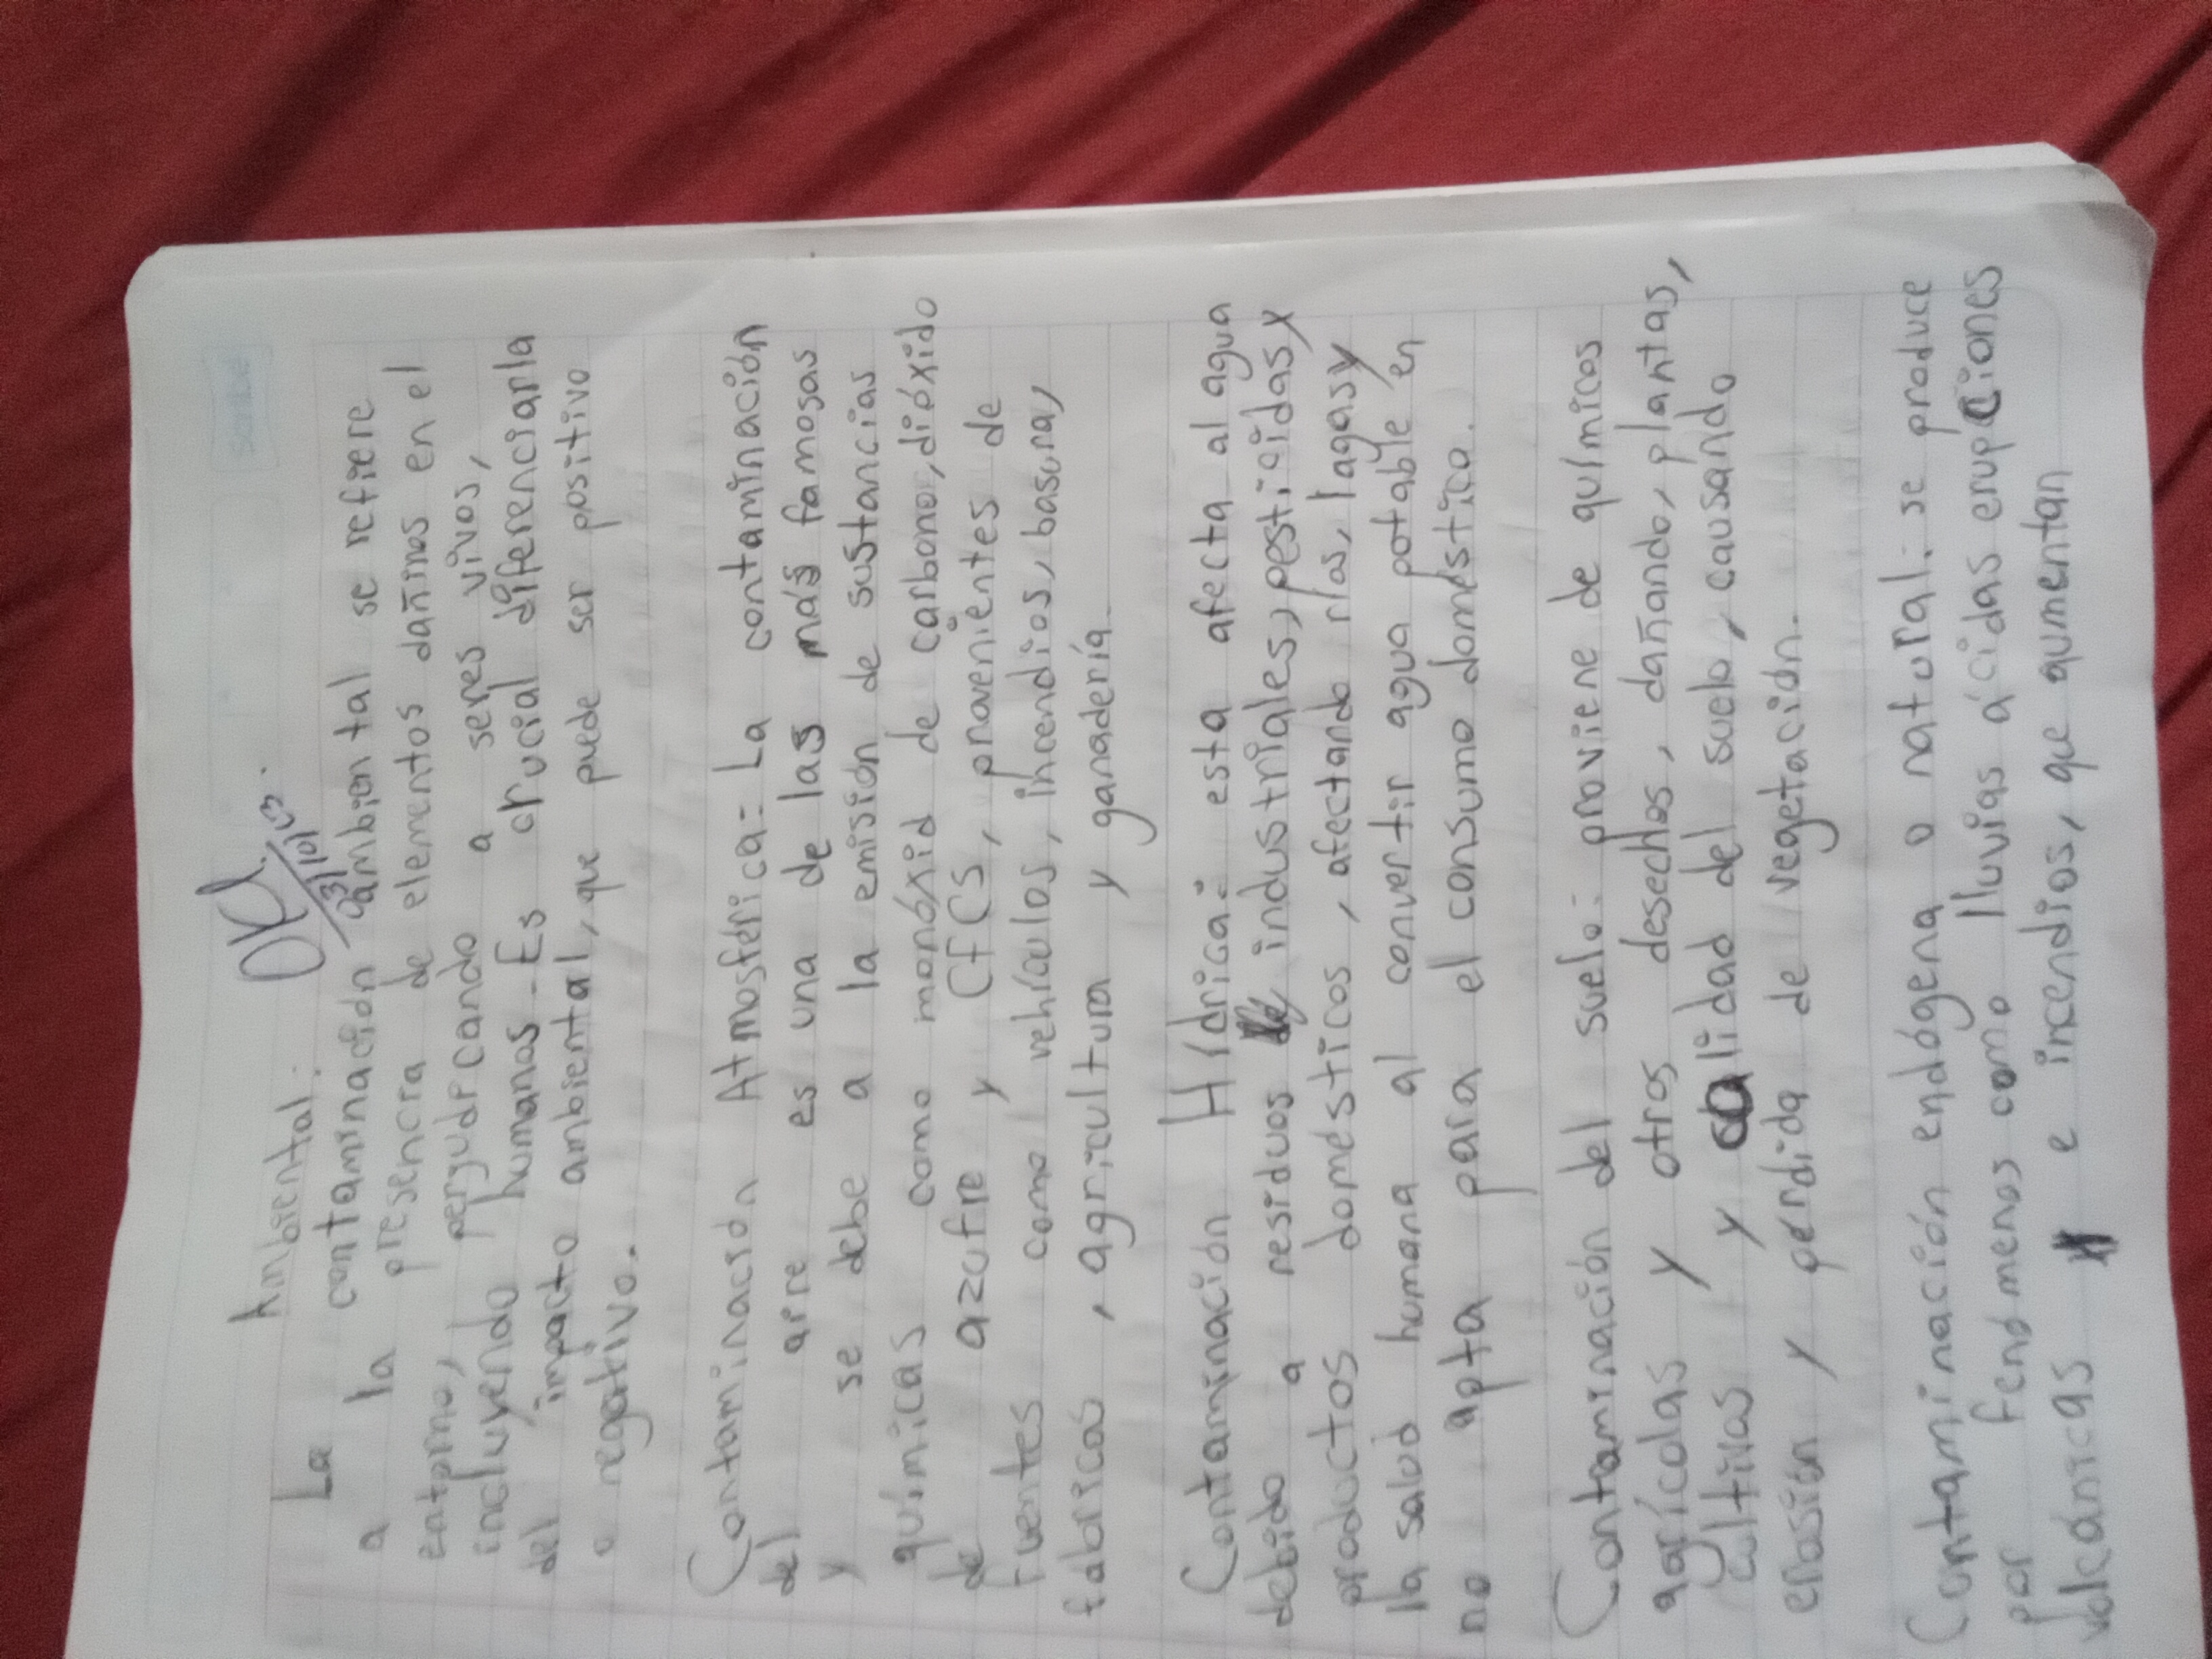 Ambiental:
La contaminación ambiental se refiere
a la presencia de elementos dañinos en el
entorno, perjudicando a seres vivos,
incluyendo humanos. Es crucial diferenciarla
del impacto ambiental, que puede ser positivo
o negativo.
Contaminación Atmosférica: La contaminación
del aire es una de las más famosas
y se debe a la emisión de sustancias
químicas como monóxid de carbono, dióxido
de azufre y CFCS, provenientes de
fuentes como vehículos, incendios, basura,
fabricas, agricultura y ganadería
Contaminación Hídrica: esta afecta al agua
debido a residuos industriales, pesticidas y
productos domésticos, afectando ríos, lagos y
la salud humana al convertir agua potable en
no apta para el consumo doméstico.
Contaminación del suelo: proviene de químicos
agrícolas y otros desechos, dañando, plantas,
cultivos y calidad del suelo, causando
erosión y perdida de vegetación.
Contaminación endógena o natural: se produce
por fenómenos como lluvias ácidas erupciones
volcánicas e incendios, que aumentan